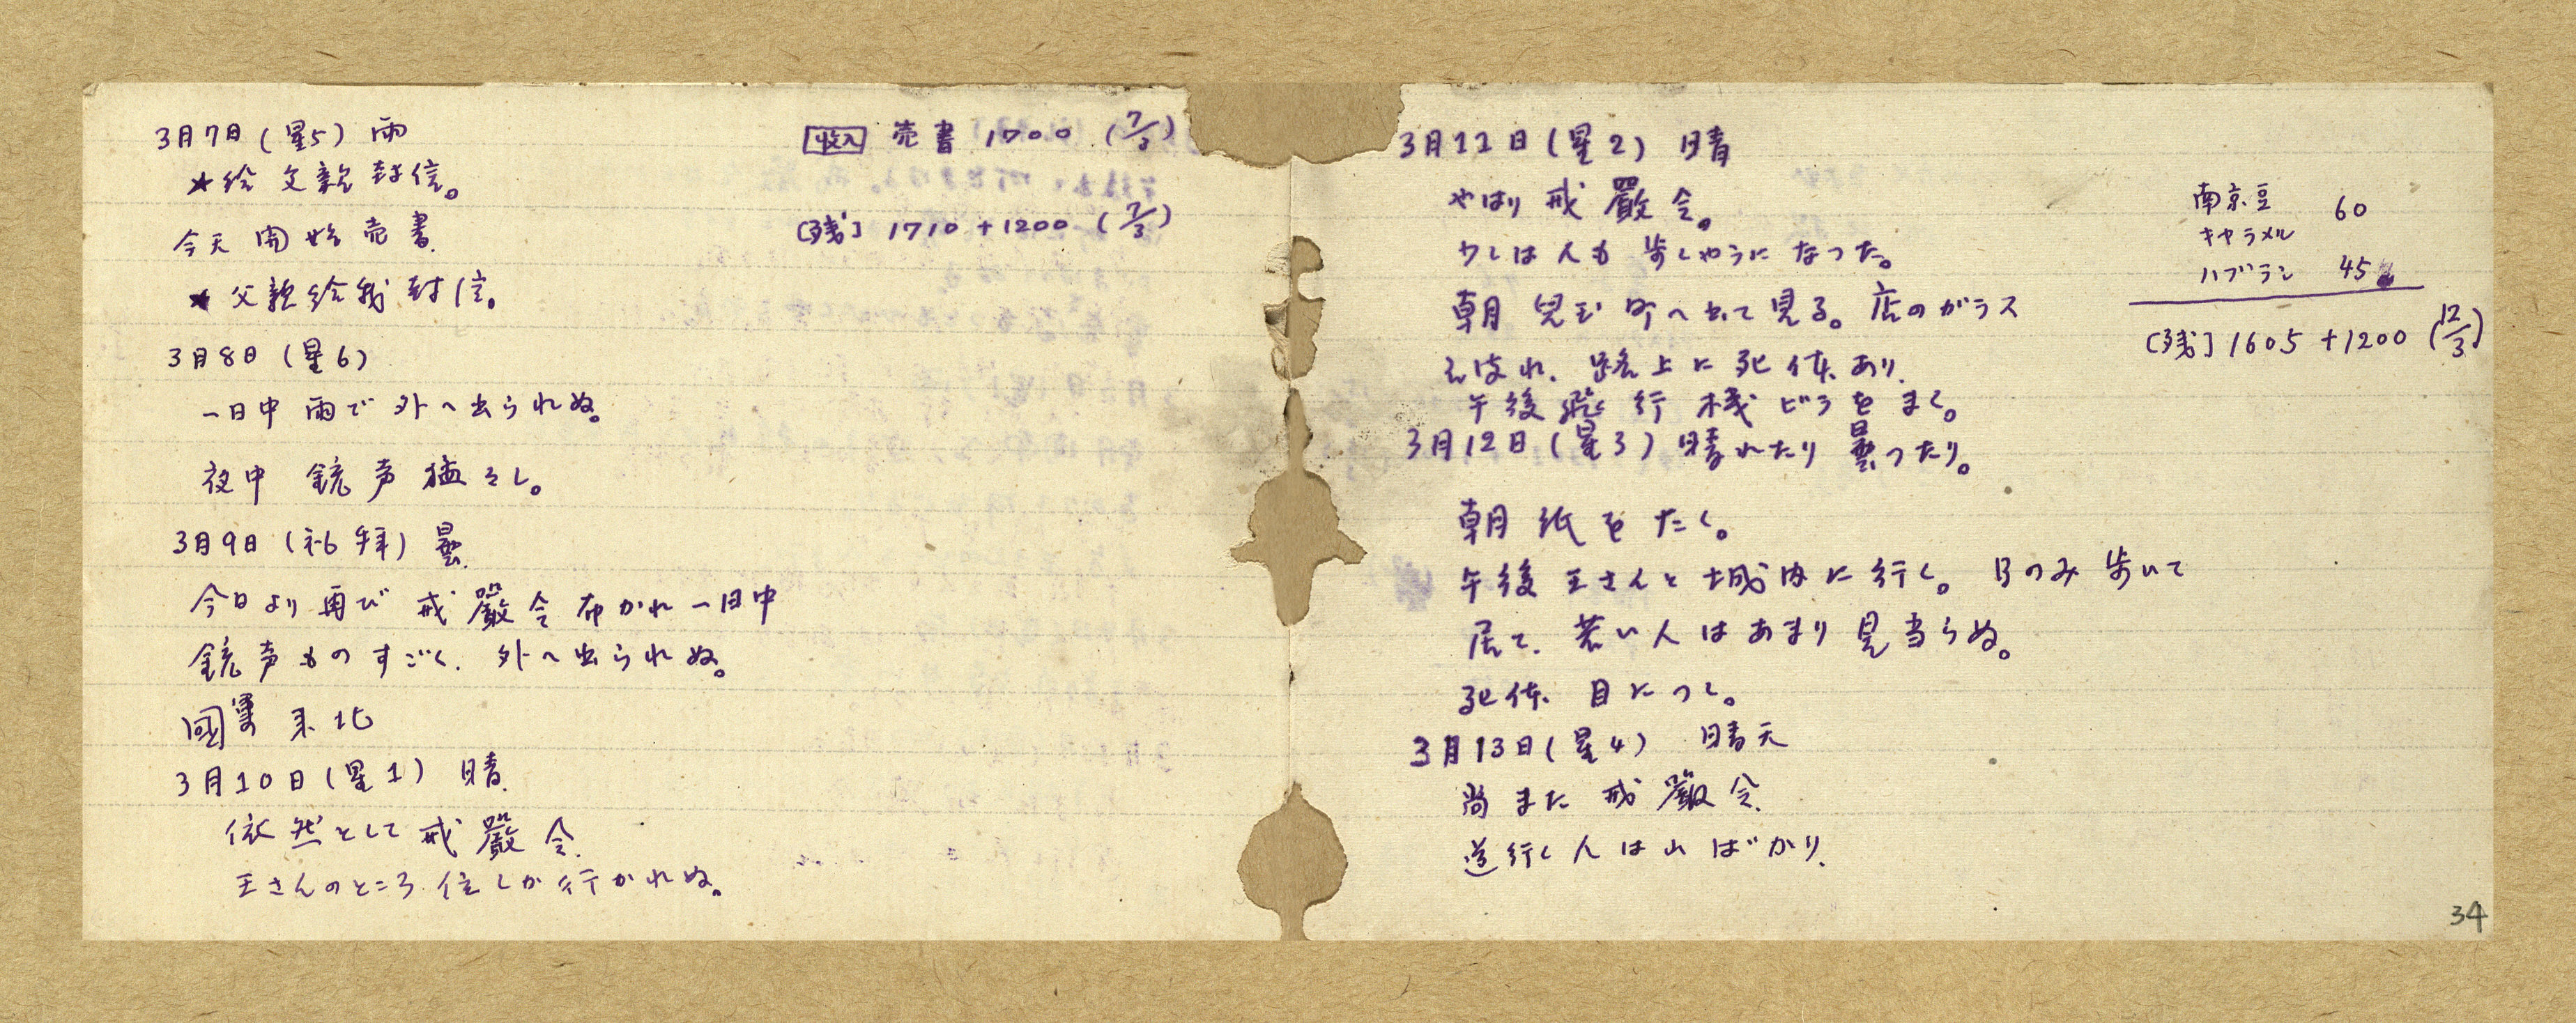 3月7日（星5） 雨
★給父親封信。
今天開始売書.
★父親給我封信。
3月8日（星6）
一日中雨で外へ出られぬ。
夜中 銃声猛々し。
3月9日（礼拜）曇.
今日より再び戒嚴令布かれ一日中
銃声ものすごく. 外へ出られぬ。
國軍来北
3月10日（星1） 晴.
依然として戒嚴令.
王さんのところ位しか行かれぬ。
収入 売書 1700 (7/3)
[残] 1710 + 1200 (7/3)
3月11日（星2） 晴
やはり戒嚴令。
少しは人も歩くやうになつた。
朝 町へ出て見る。店のガラス
こはれ. 路上に死体あり.
午後飛行機ビラをまく。
3月12日（星3）晴れたり曇つたり。
朝紙をたく。
午後王さんと城内に行く。 のみ歩いて
居て. 若い人はあまり見当らぬ。
死体 目につく。
3月13日（星4） 晴天
尚また戒嚴令.
道行く人は ばかり.
南京豆
キャラメル 60
ハブラシ 45
[残] 1605 + 1200 (12/3)
34